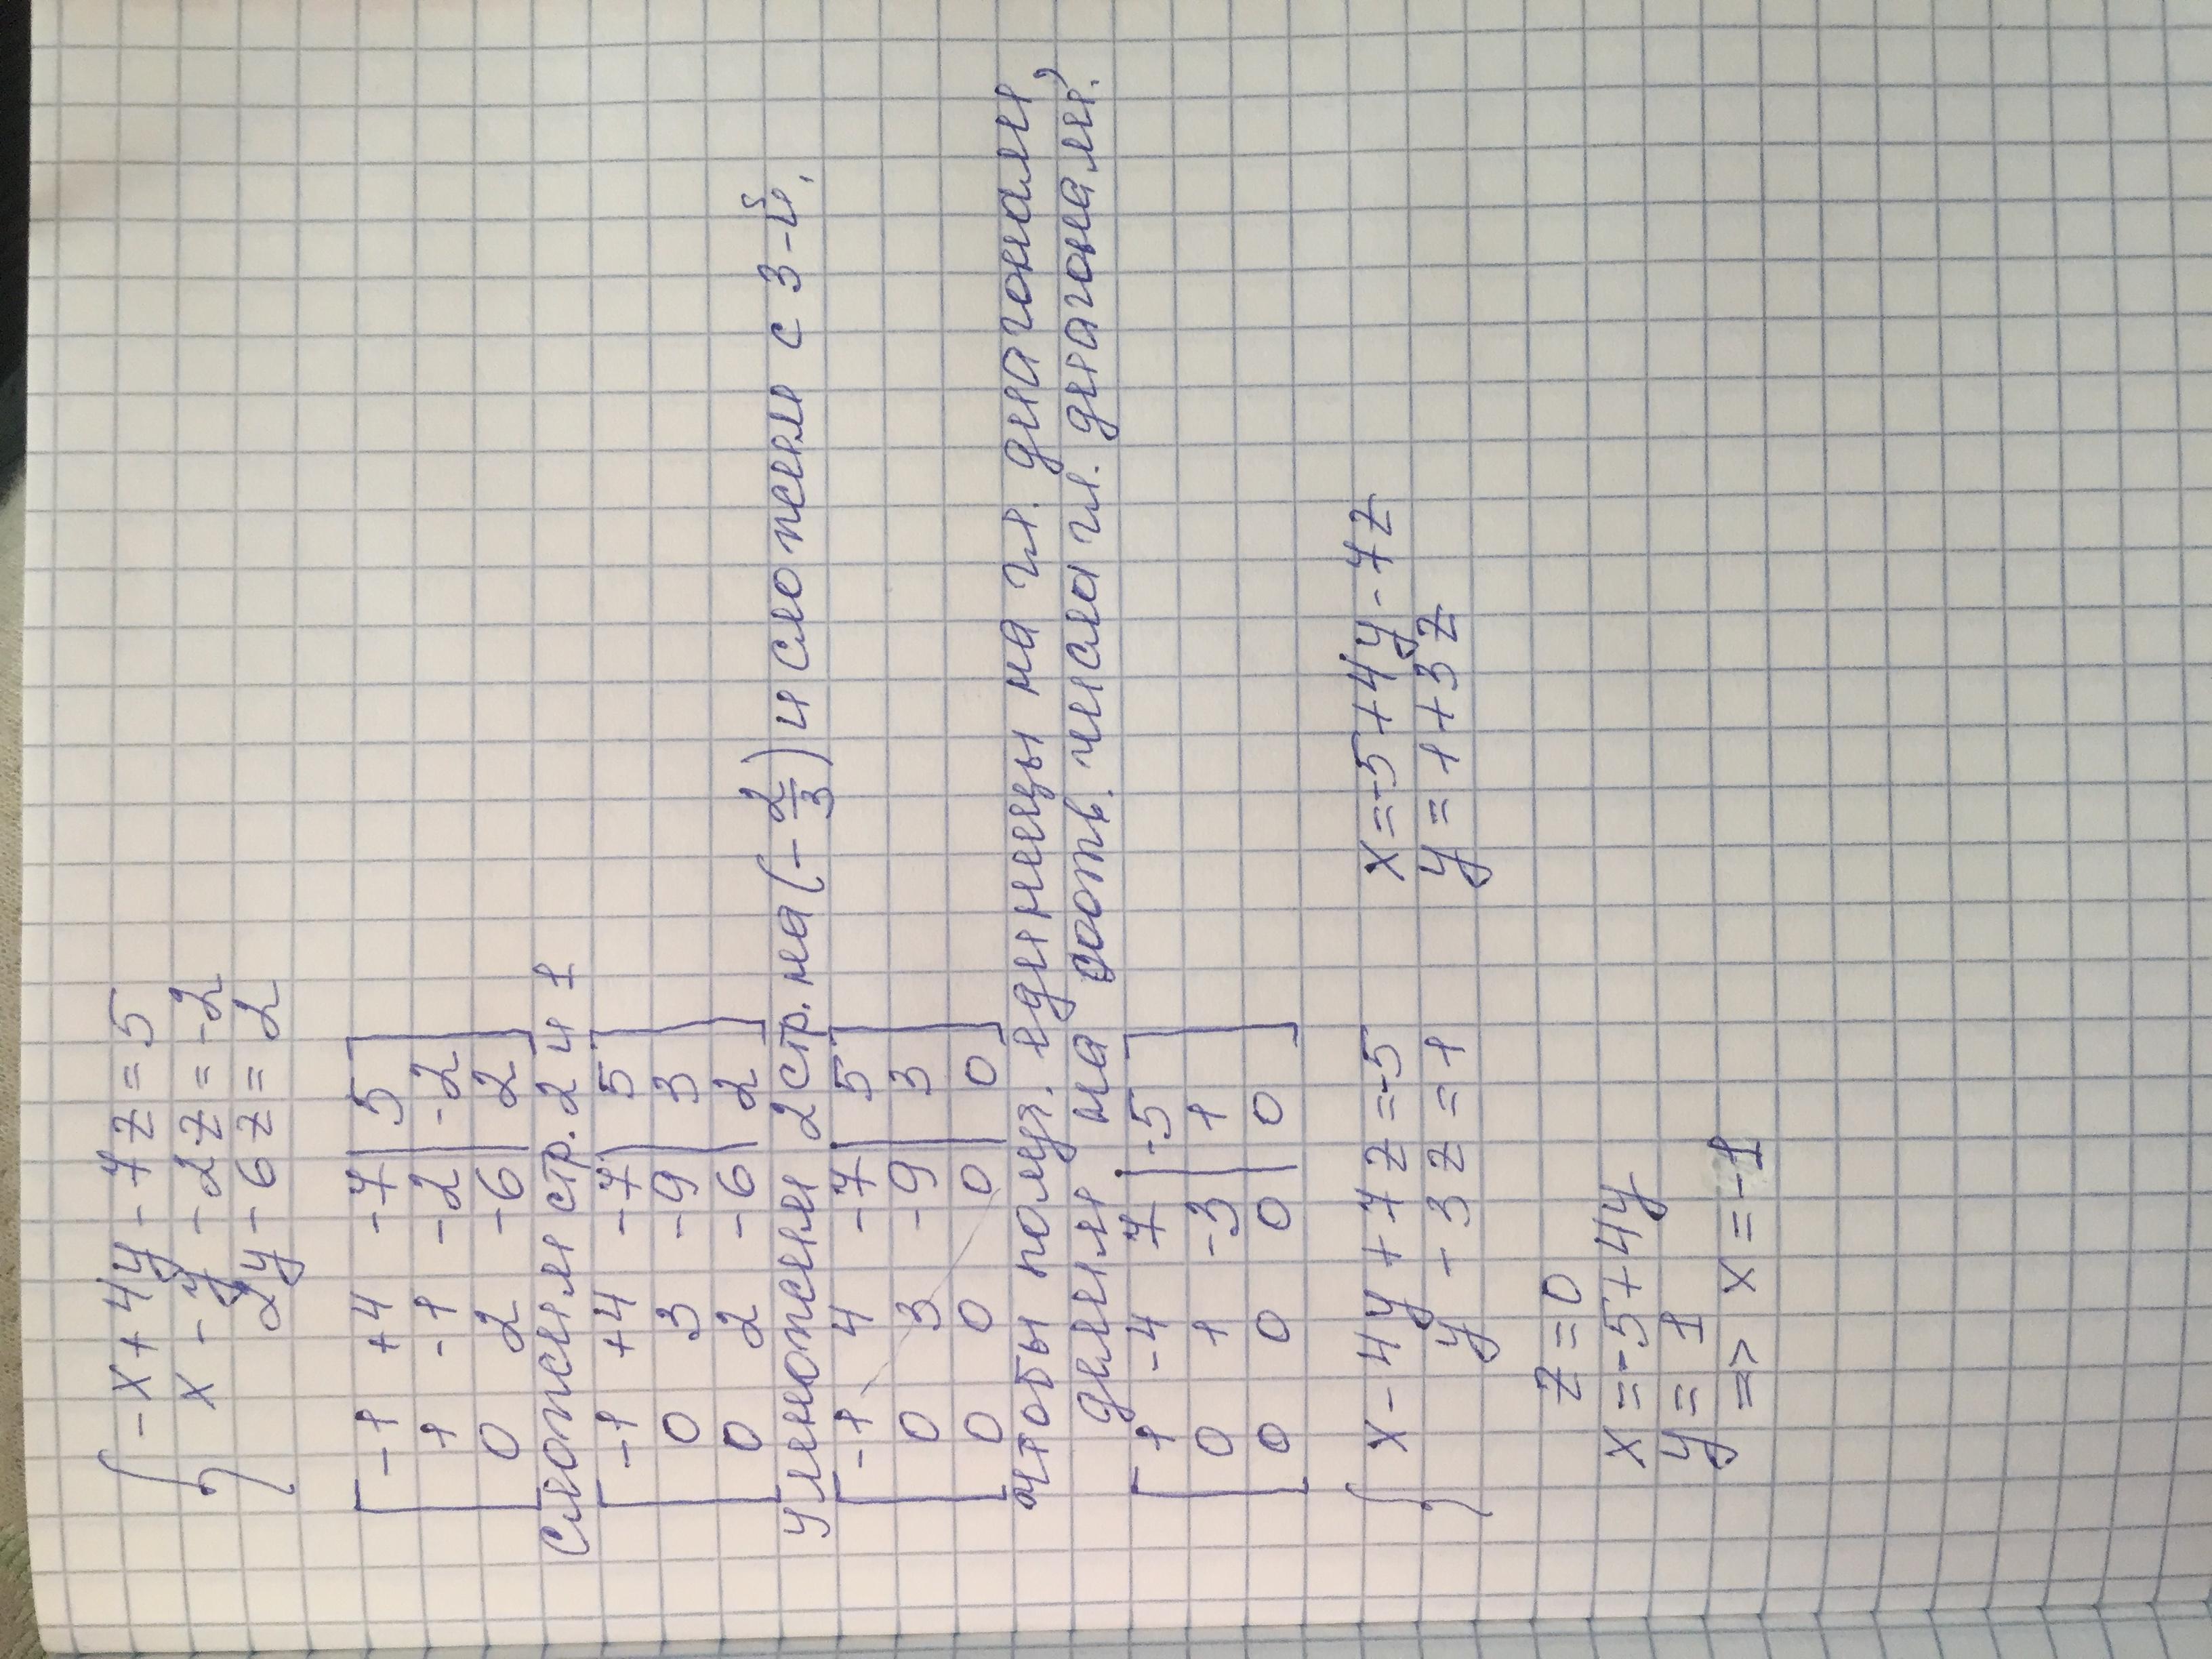 -x+4y-7z=5
x-y-2z=-2
2y-6z=2
-1 +4 -7 5
1 -1 -2 -2
0 2 -6 2
Сложим стр. 2 и 1
-1 +4 -7 5
0 3 -9 3
0 2 -6 2
Умножим 2 стр. на (-2/3) и сложим с 3-й.
-1 4 -7 5
0 3 -9 3
0 0 0 0
чтобы получ. единицы на гл. диагонали,
делим на соотв. числа гл. диагонали.
1 -4 7 -5
0 1 -3 1
0 0 0 0
x-4y+7z=-5 x=-5+4y-7z
y-3z=1 y=1+3z
z=0
x=-5+4y
y=1
=> x=-1